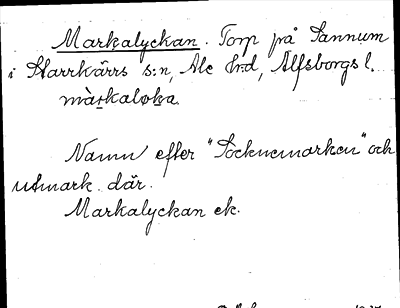 Markalyckan. Torp på Tannum
i Starrkärrs s:n, Ale hrd, Älfsborgs l.
màrkaloka.
Namn efter "Söcknemarken" och
utmark där.
Markalyckan ek.